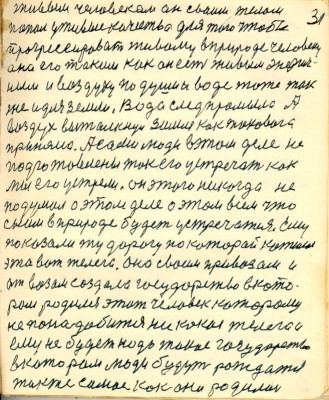 живым человеком он своим телом
попал у живые качества для того чтобы 31
прогрессировать живому в природе человеку
она его таким как он есть живым энергич-
ным и воздуху подушны воде тоже так
же и для земли. Вода след промыла А
воздух вытолкнул Земля как таковога
приняла. А сами люди в этом деле не
подготовлены так его устречат как
мы его устрели. он этого некогда не
подумал о этом деле о этом всем что
с ним в природе будет устречатся. Ему
показали ту дорогу по которай катилася
эта вот телега. она своим привозам и
от возам создала государство в кото-
ром родился этот человек которому
не понадобится не какая телега и
ему не будет надь такое государство
в котором люди будут рождатся
также самое как она родилась